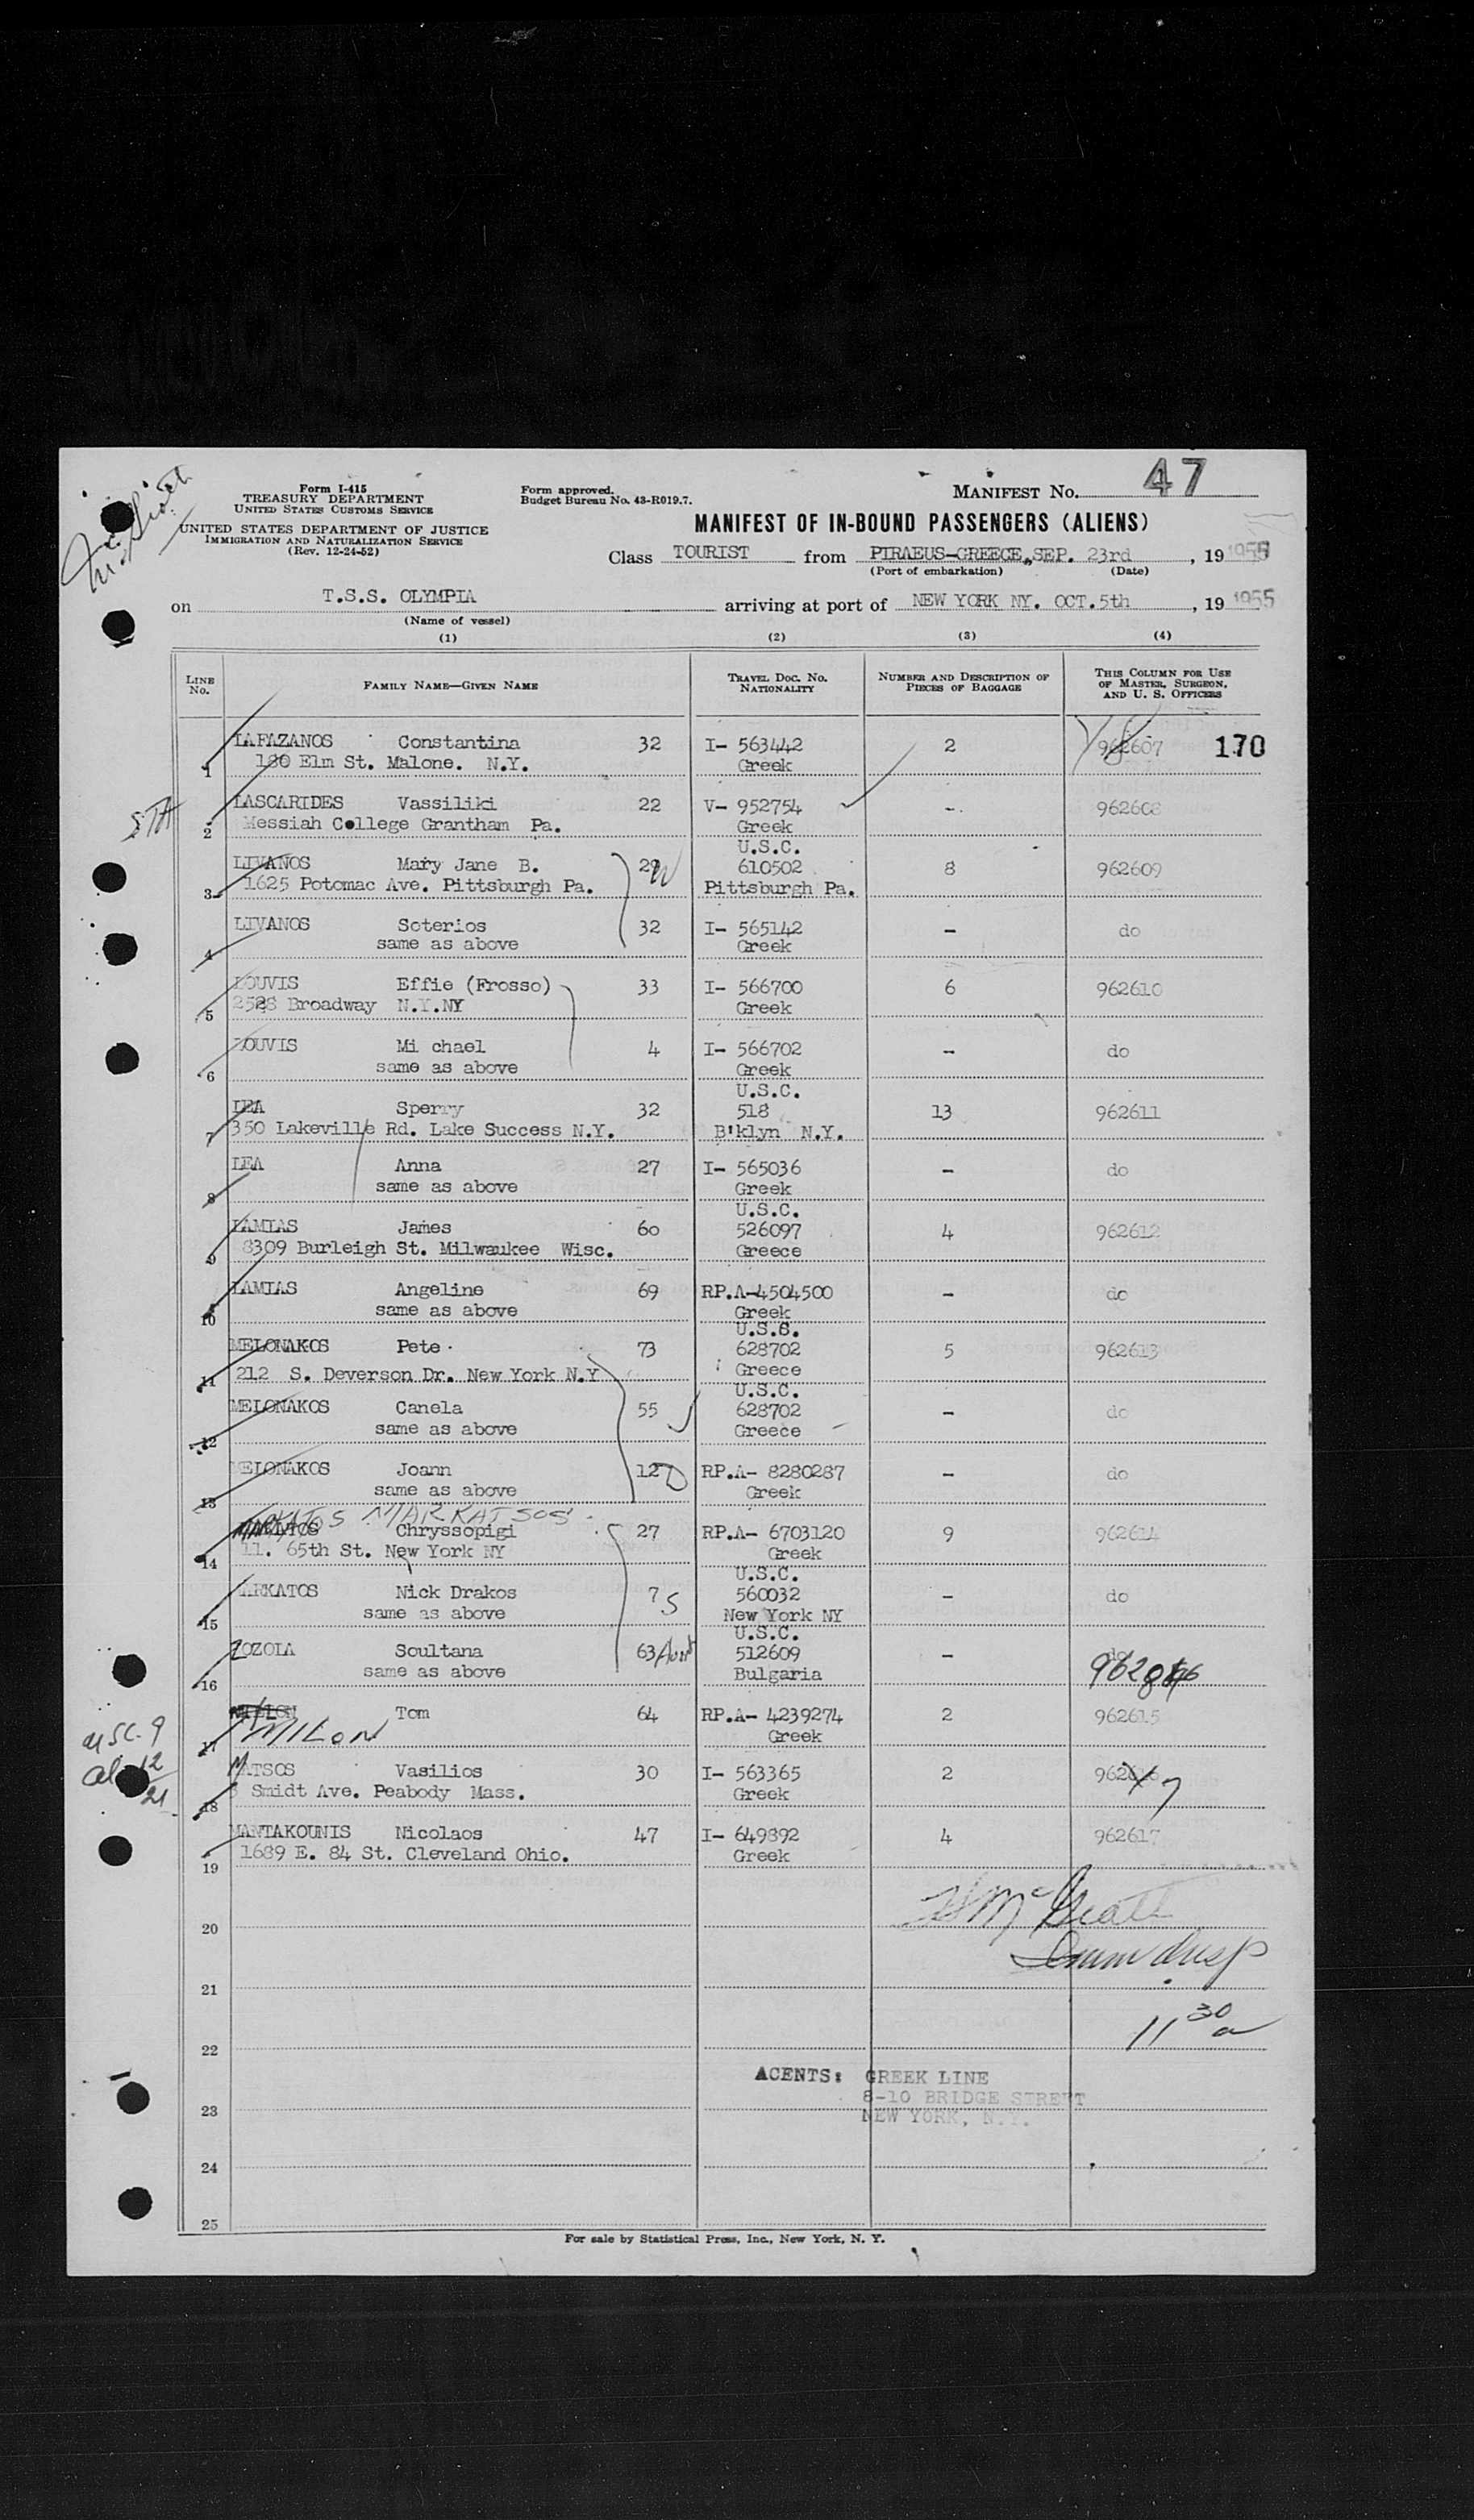 47
Form I-415
TREASURY DEPARTMENT
UNITED STATES CUSTOMS SERVICE
UNITED STATES DEPARTMENT OF JUSTICE
IMMIGRATION AND NATURALIZATION SERVICE
(Rev. 12-24-52)
Form approved.
Budget Bureau No. 43-R019.7.
MANIFEST No.
MANIFEST OF IN-BOUND PASSENGERS (ALIENS)
Class TOURIST from PIRAEUS-GREECE, SEP. 23rd, 19 1955
(Port of embarkation) (Date)
on T.S.S. OLYMPIA arriving at port of NEW YORK NY. OCT.5th, 19 1955
(Name of vessel)
(1) (2) (3) (4)
LINE No. FAMILY NAME—GIVEN NAME TRAVEL DOC. NO. NATIONALITY NUMBER AND DESCRIPTION OF PIECES OF BAGGAGE THIS COLUMN FOR USE OF MASTER, SURGEON, AND U. S. OFFICERS
LAFAZANOS Constantina 32 I- 563442 2 962607 170
1 180 Elm St. Malone. N.Y. Greek
LASCARIDES Vassiliki 22 V- 952754 -. 962608
2 Messiah College Grantham Pa. Greek
U.S.C.
LIVANOS Mary Jane B. 29 W 610502 8 962609
3 1625 Potomac Ave. Pittsburgh Pa. Pittsburgh Pa.
LIVANOS Soterios 32 I- 565142 - do
4 same as above Greek
LOUVIS Effie (Frosso) 33 I- 566700 6 962610
5 2528 Broadway N.Y.NY Greek
LOUVIS Mi chael 4 I- 566702 - do
6 same as above Greek
U.S.C.
LEA Sperry 32 518 13 962611
7 350 Lakeville Rd. Lake Success N.Y. B'klyn N.Y.
LEA Anna 27 I- 565036 - do
8 same as above Greek
U.S.C.
LAMIAS James 60 526097 4 962612
9 8309 Burleigh St. Milwaukee Wisc. Greece
LAMIAS Angeline 69 RP.A-4504500 - do
10 same as above Greek
U.S.S.
MELONAKOS Pete 73 628702 5 962613
11 212 S. Deverson Dr. New York N.Y Greece
U.S.C.
MELONAKOS Canela 55 628702 - do
12 same as above Greece
MELONAKOS Joann 12 D RP.A- 8280287 - do
13 same as above Greek
MARKATSOS
Chryssopigi 27 RP.A- 6703120 9 962614
14 11. 65th St. New York NY Greek
U.S.C.
MARKATOS Nick Drakos 7 S 560032 - do
15 same as above New York NY
U.S.C.
ZOZOLA Soultana 63 Aunt 512609 -
16 same as above Bulgaria
Tom 64 RP.A- 4239274 2 962615
17 MILON Greek
MATSOS Vasilios 30 I- 563365 2 7
18 Smidt Ave. Peabody Mass. Greek
MANTAKOUNIS Nicolaos 47 I- 649892 4 962617
19 1689 E. 84 St. Cleveland Ohio. Greek
USC. 9
al 12
21
20
Imm Insp
21
11 30 a
22
AGENTS: GREEK LINE
8-10 BRIDGE STREET
23
NEW YORK, N.Y.
24
25
For sale by Statistical Press, Inc., New York, N. Y.